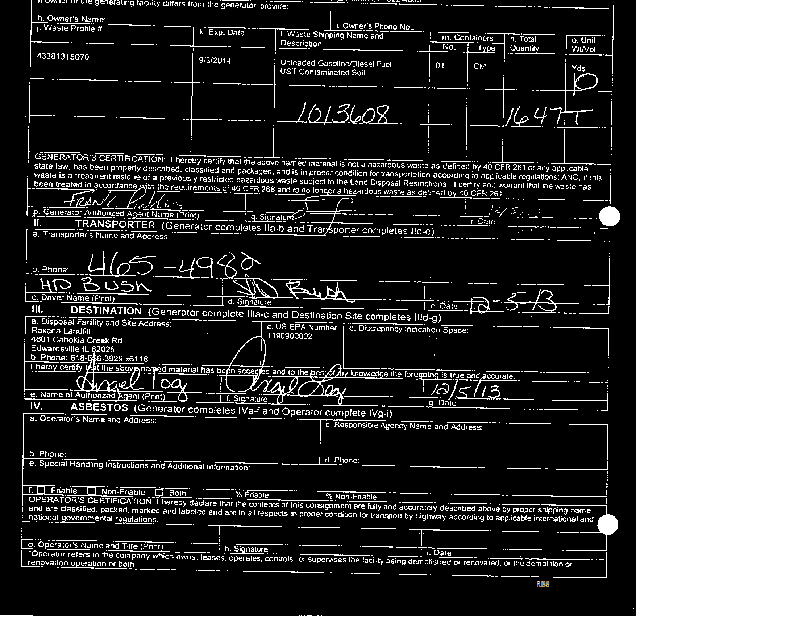 If owner of the generating facility differs from the generator provide:
h. Owner's Name: i. Owner's Phone No.:
j. Waste Profile # k. Exp. Date l. Waste Shipping Name and Description m. Containers n. Total Quantity o. Unit Wt/Vol
No. Type
43381315070 9/3/2014 Unleaded Gasoline/Diesel Fuel UST Contaminated Soil 01 CM Yds
1013608 1647T
GENERATOR'S CERTIFICATION: I hereby certify that the above named material is not a hazardous waste as defined by 40 CFR 261 or any applicable
state law, has been properly described, classified and packaged, and is in proper condition for transportation according to applicable regulations; AND, if this
waste is a treatment residue of a previously restricted hazardous waste subject to the Land Disposal Restrictions. I certify and warrant that the waste has
been treated in accordance with the requirements of 40 CFR 268 and is no longer a hazardous waste as defined by 40 CFR 261.
Frank
p. Generator Authorized Agent Name (Print) q. Signature r. Date
II. TRANSPORTER (Generator completes IIa-b and Transporter completes IIc-e)
a. Transporter's Name and Address:
b. Phone: 465-4982
HD Bush HD Bush 12-5-13
c. Driver Name (Print) d. Signature e. Date
III. DESTINATION (Generator complete IIIa-c and Destination Site completes IIId-g)
a. Disposal Facility and Site Address: c. US EPA Number d. Discrepancy Indication Space:
Roxana Landfill 1190900002
4601 Cahokia Creek Rd
Edwardsville IL 62025
b. Phone: 618-656-3929 x5116
I hereby certify that the above named material has been accepted and to the best of my knowledge the foregoing is true and accurate.
Angel 12/5/13
e. Name of Authorized Agent (Print) f. Signature g. Date
IV. ASBESTOS (Generator completes IVa-f and Operator complete IVg-i)
a. Operator's Name and Address: c. Responsible Agency Name and Address:
b. Phone: d. Phone:
e. Special Handling Instructions and Additional Information:
f. Friable Non-Friable Both % Friable % Non-Friable
OPERATOR'S CERTIFICATION: I hereby declare that the contents of this consignment are fully and accurately described above by proper shipping name
and are classified, packed, marked and labeled and are in all respects in proper condition for transport by highway according to applicable international and
national governmental regulations.
g. Operator's Name and Title (Print) h. Signature i. Date
*Operator refers to the company which owns, leases, operates, controls, or supervises the facility being demolished or renovated, or the demolition or
renovation operation or both